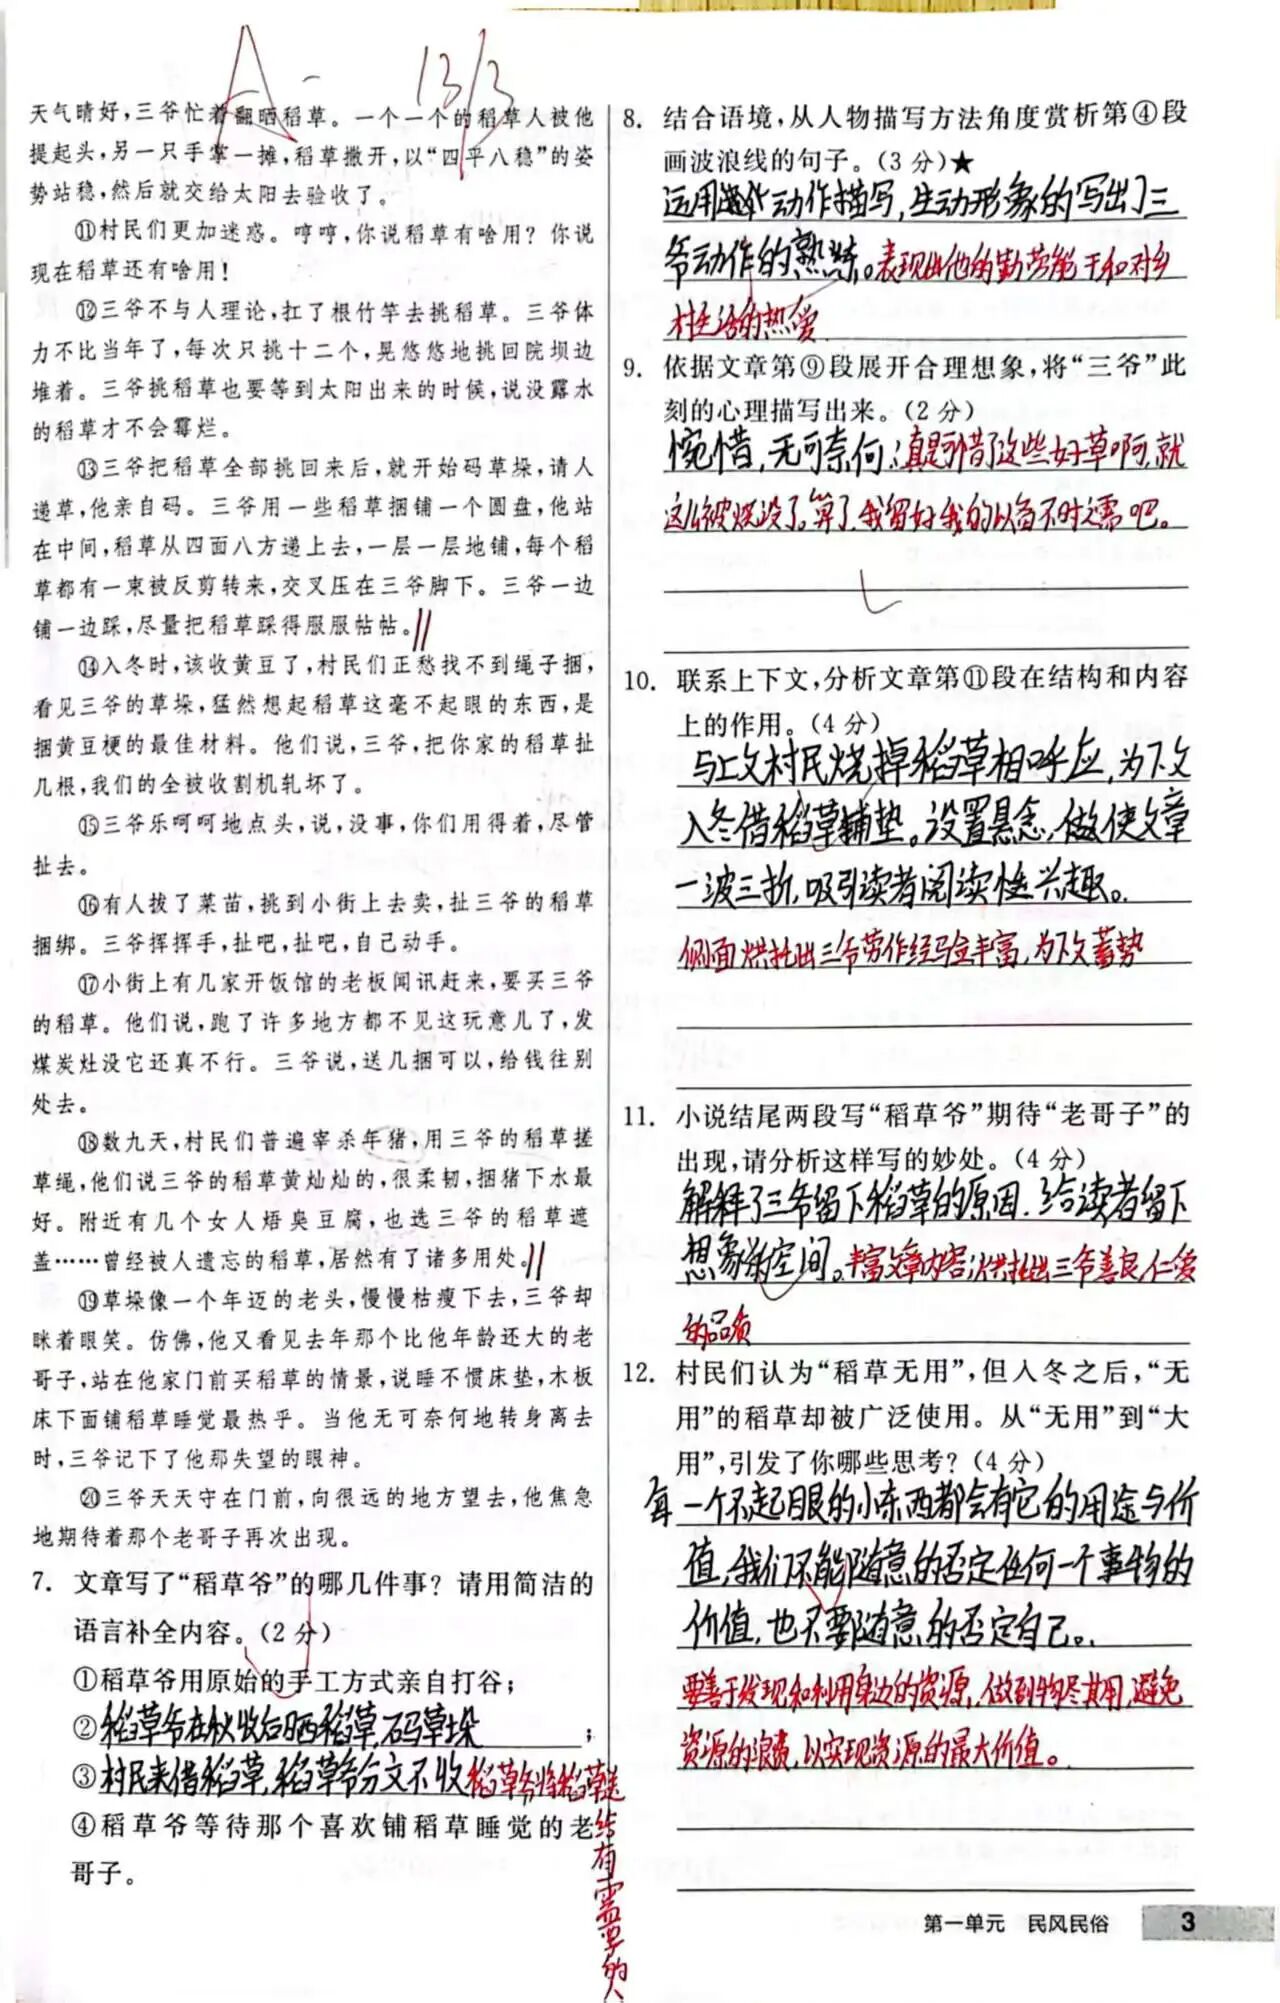 A-
13/3
天气晴好，三爷忙着翻晒稻草。一个一个的稻草人被他
提起头，另一只手掌一摊，稻草撒开，以“四平八稳”的姿
势站稳，然后就交给太阳去验收了。
⑪村民们更加迷惑。哼哼，你说稻草有啥用？你说
现在稻草还有啥用！
⑫三爷不与人理论，扛了根竹竿去挑稻草。三爷体
力不比当年了，每次只挑十二个，晃悠悠地挑回院坝边
堆着。三爷挑稻草也要等到太阳出来的时候，说没露水
的稻草才不会霉烂。
⑬三爷把稻草全部挑回来后，就开始码草垛，请人
递草，他亲自码。三爷用一些稻草捆铺一个圆盘，他站
在中间，稻草从四面八方递上去，一层一层地铺，每个稻
草都有一束被反剪转来，交叉压在三爷脚下。三爷一边
铺一边踩，尽量把稻草踩得服服帖帖。
⑭入冬时，该收黄豆了，村民们正愁找不到绳子捆，
看见三爷的草垛，猛然想起稻草这毫不起眼的东西，是
捆黄豆梗的最佳材料。他们说，三爷，把你家的稻草扯
几根，我们的全被收割机轧坏了。
⑮三爷乐呵呵地点头，说，没事，你们用得着，尽管
扯去。
⑯有人拔了菜苗，挑到小街上去卖，扯三爷的稻草
捆绑。三爷挥挥手，扯吧，扯吧，自己动手。
⑰小街上有几家开饭馆的老板闻讯赶来，要买三爷
的稻草。他们说，跑了许多地方都不见这玩意儿了，发
煤炭灶没它还真不行。三爷说，送几捆可以，给钱往别
处去。
⑱数九天，村民们普遍宰杀年猪，用三爷的稻草搓
草绳，他们说三爷的稻草黄灿灿的，很柔韧，捆猪下水最
好。附近有几个女人焐臭豆腐，也选三爷的稻草遮
盖……曾经被人遗忘的稻草，居然有了诸多用处。
⑲草垛像一个年迈的老头，慢慢枯瘦下去，三爷却
眯着眼笑。仿佛，他又看见去年那个比他年龄还大的老
哥子，站在他家门前买稻草的情景，说睡不惯床垫，木板
床下面铺稻草睡觉最热乎。当他无可奈何地转身离去
时，三爷记下了他那失望的眼神。
⑳三爷天天守在门前，向很远的地方望去，他焦急
地期待着那个老哥子再次出现。
7. 文章写了“稻草爷”的哪几件事？请用简洁的
语言补全内容。（2分）
①稻草爷用原始的手工方式亲自打谷；
②稻草爷在秋收后晒稻草，码草垛；
③村民来借稻草，稻草爷分文不收稻草爷将稻草送
给有需要的人
④稻草爷等待那个喜欢铺稻草睡觉的老
哥子。
8. 结合语境，从人物描写方法角度赏析第④段
画波浪线的句子。（3分）★
运用动作描写，生动形象的写出了三
爷动作的熟练。表现出他的勤劳能干和对乡
村生活的热爱
9. 依据文章第⑨段展开合理想象，将“三爷”此
刻的心理描写出来。（2分）
惋惜，无可奈何；真是可惜了这些好草啊，就
这么被烧没了。算了，我留好我的以备不时之需吧。
10. 联系上下文，分析文章第⑪段在结构和内容
上的作用。（4分）
与上文村民烧掉稻草相呼应，为下文
入冬借稻草铺垫。设置悬念，做使文章
一波三折，吸引读者阅读性兴趣。
侧面烘托出三爷劳作经验丰富，为下文蓄势
11. 小说结尾两段写“稻草爷”期待“老哥子”的
出现，请分析这样写的妙处。（4分）
解释了三爷留下稻草的原因，给读者留下
想象的空间。丰富文章内容；烘托出三爷善良，仁爱
的品质
12. 村民们认为“稻草无用”，但入冬之后，“无
用”的稻草却被广泛使用。从“无用”到“大
用”，引发了你哪些思考？（4分）
每一个不起眼的小东西都会有它的用途与价
值，我们不能随意的否定任何一个事物的
价值，也不要随意的否定自己。
要善于发现和利用身边的资源，做到物尽其用，避免
资源的浪费，以实现资源的最大价值。
第一单元 民风民俗 3